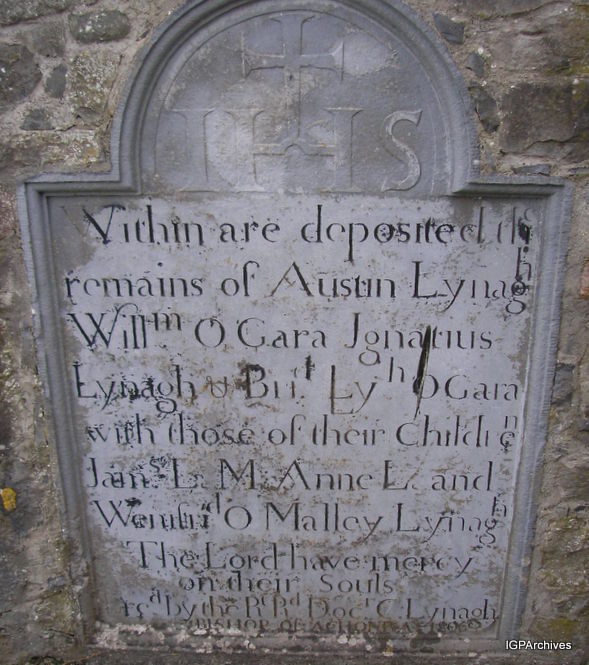 IHS
Within are deposited the
remains of Austin Lynagh
Willm O'Gara Ignatius
Lynagh & Brit Lyh O Gara
with those of their Children
Jams L. M. Anne L. and
O Malley Lynagh
The Lord have mercy
on their Souls
by the Rt Rd Doct C. Lynagh
BISHOP OF ACHONRY
IGPArchives